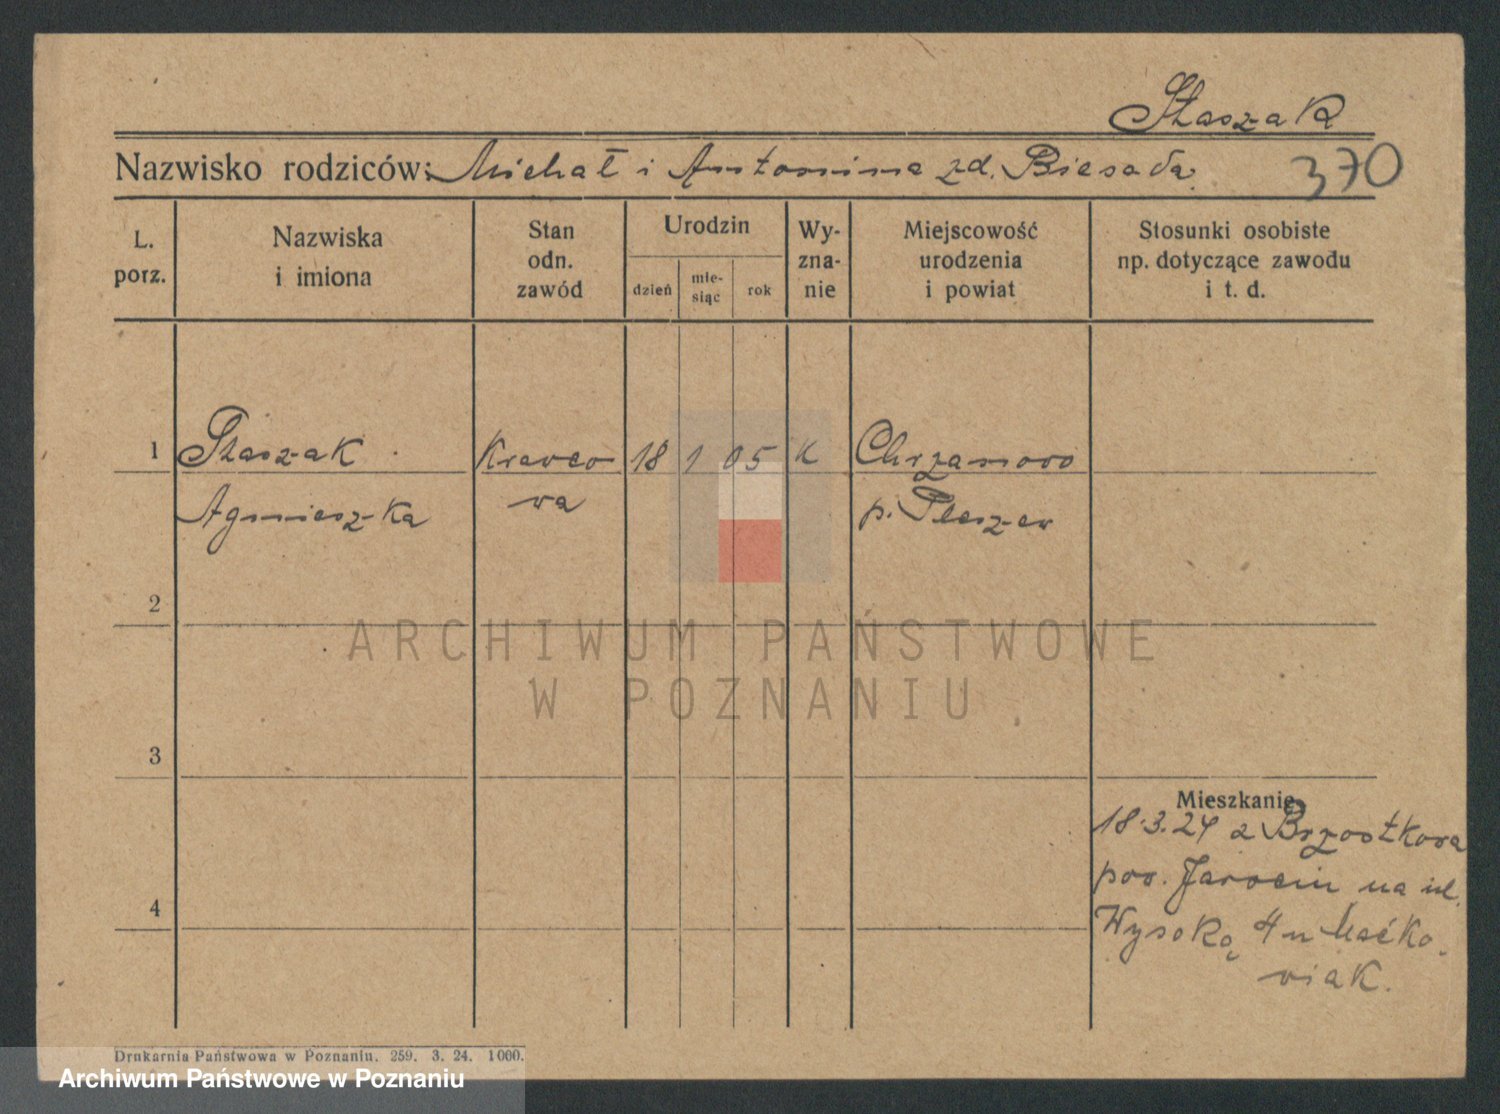 Staszak
Nazwisko rodziców: Michał i Antonina zd. Biesada.
370
L. porz.
Nazwiska i imiona
Stan odn. zawód
Urodzin
dzień
mie-siąc
rok
Wy-zna-nie
Miejscowość urodzenia i powiat
Stosunki osobiste np. dotyczące zawodu i t. d.
1 Staszak Krawco 18 1 05 K Chrzanowo
Agnieszka wa p. Pleszew
2
3
4
Mieszkanie
18.3.24 z Brzostkowa
pow. Jarocin na ul.
Wysoką 4 u Maćko
wiak.
ARCHIWUM PAŃSTWOWE
W POZNANIU
Drukarnia Państwowa w Poznaniu. 259. 3. 24. 1000.
Archiwum Państwowe w Poznaniu